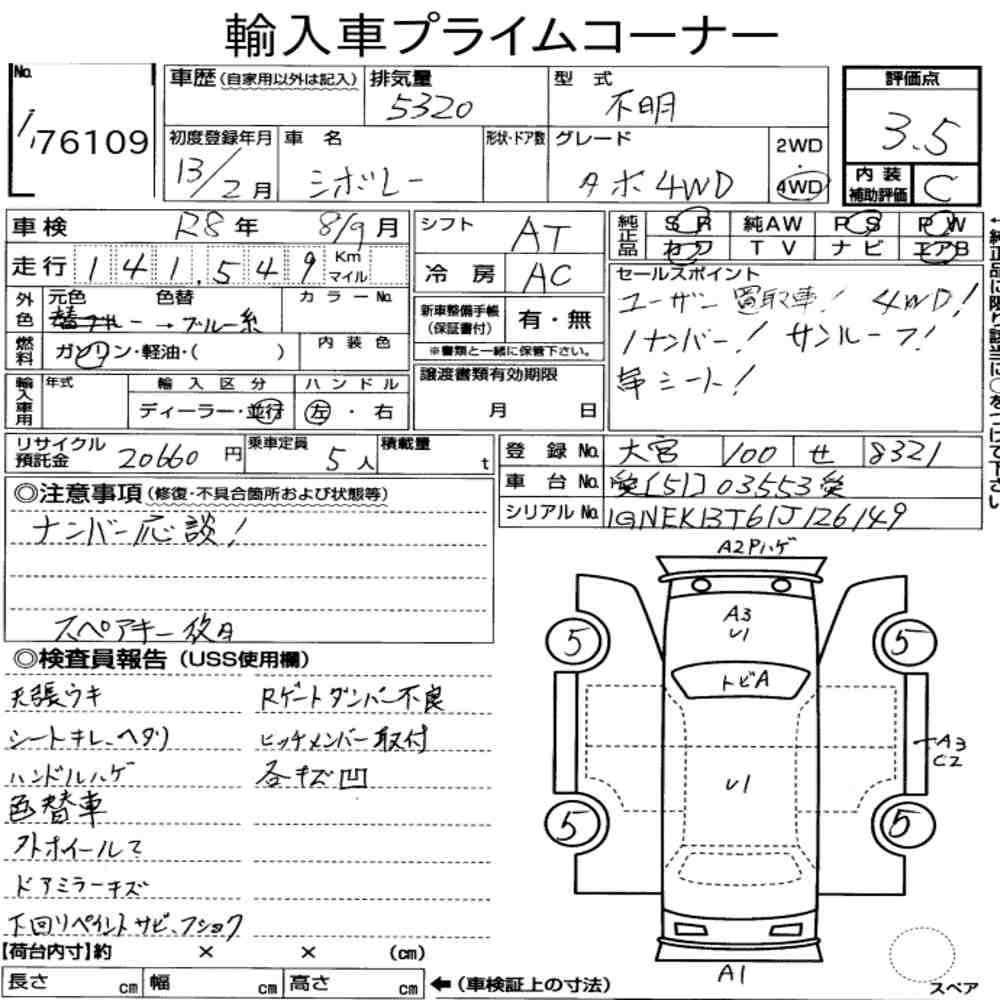 輸入車プライムコーナー
No. 76109
車歴(自家用以外は記入)
排気量 5320
型式 不明
評価点 3.5
初度登録年月 13/2月
車名 シボレー
形状・ドア数
グレード タホ4WD
2WD・4WD
内装補助評価 C
車検 R8年 8/9月
シフト AT
純正品 SR 純AW PS PW
カワ TV ナビ エアB
走行 141,549 Km マイル
冷房 AC
セールスポイント
ユーザー買取車! 4WD!
1ナンバー! サンルーフ!
革シート!
←純正品に限り該当に○をつけて下さい
外色 元色 色替 カラーNo.
ブルー→ブルー系
新車整備手帳(保証書付) 有・無
※書類と一緒に保管下さい。
燃料 ガソリン・軽油・( )
内装色
輸入車用 年式 輸入区分 ハンドル
ディーラー・並行 左・右
譲渡書類有効期限
月 日
リサイクル預託金 20660円
乗車定員 5人
積載量 t
登録No. 大宮 100 せ 8321
車台No. [51]03553
シリアルNo. 1GNEK13T61J126149
◎注意事項(修復・不具合箇所および状態等)
ナンバー応談!
スペアキー後日
◎検査員報告(USS使用欄)
天張ウキ Rゲートダンパー不良
シートキレ、ヘタリ ヒッチメンバー取付
ハンドルハゲ 各キズ凹
色替車
外ホイールて
ドアミラーキズ
下回リペイントサビ、フショク
A2Pハゲ
A3
U1
5 5
トビA
A3
C2
U1
5 5
A1
スペア
【荷台内寸】約 × × (cm)
長さ cm 幅 cm 高さ cm ←(車検証上の寸法)